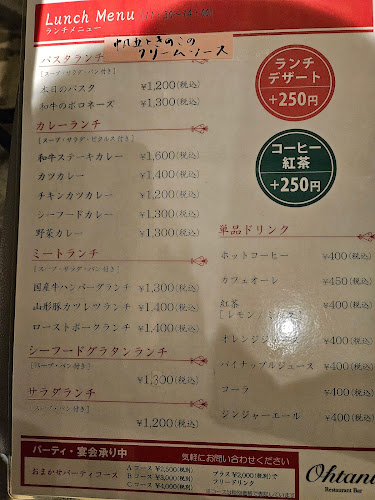 Lunch Menu
ランチメニュー
帆立ときのこの
クリームソース
パスタランチ
[スープ・サラダ・パン付き]
本日のパスタ ¥1,200(税込)
和牛のボロネーズ ¥1,300(税込)
カレーランチ
[スープ・サラダ・ピクルス付き]
和牛ステーキカレー ¥1,600(税込)
カツカレー ¥1,400(税込)
チキンカツカレー ¥1,200(税込)
シーフードカレー ¥1,300(税込)
野菜カレー ¥1,300(税込)
ミートランチ
[スープ・サラダ・パン付き]
国産牛ハンバーグランチ ¥1,300(税込)
山形豚カツレツランチ ¥1,400(税込)
ローストポークランチ ¥1,400(税込)
シーフードグラタンランチ
[スープ・パン付き]
¥1,300(税込)
サラダランチ
[スープ・パン付き]
¥1,200(税込)
ランチ
デザート
+250円
コーヒー
紅茶
+250円
単品ドリンク
ホットコーヒー ¥400(税込)
カフェオーレ ¥450(税込)
紅茶 ¥400(税込)
[レモン
オレンジジュース ¥400(税込)
パイナップルジュース ¥400(税込)
コーラ ¥400(税込)
ジンジャーエール ¥400(税込)
パーティ・宴会承り中 気軽にお問い合わせください
おまかせパーティコース
Aコース ¥2,500(税別)
Bコース ¥3,000(税別)
Cコース ¥4,000(税別)
プラス¥2,000(税別)で
フリードリンク
Ohtani
Restaurant Bar